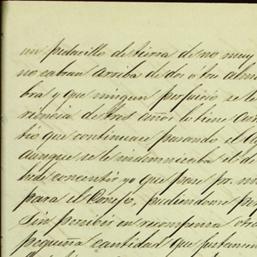 un pedacillo de tierra de no muy
no cabran arriba de dos o tres alm
bra y que ningun perjuicio se le
riencia de tres años lo tiene
tio que continuase pasando el
aunque se le indemnizaba el de
pude consentir yo que pase por m
para el Conejo, pudiendome
sin percibir en recompensa otra
pequeña cantidad que justamen